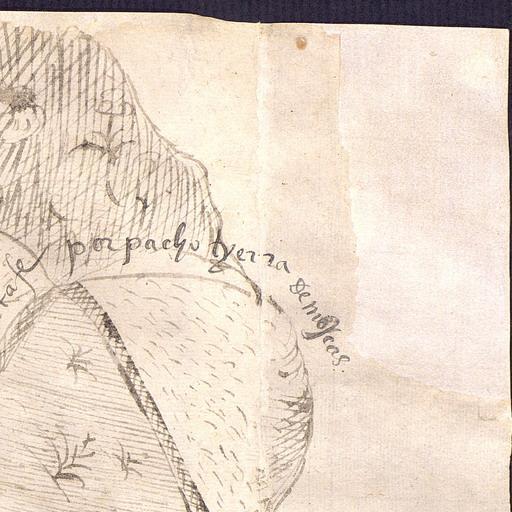 por pacho tyerra de moscas.